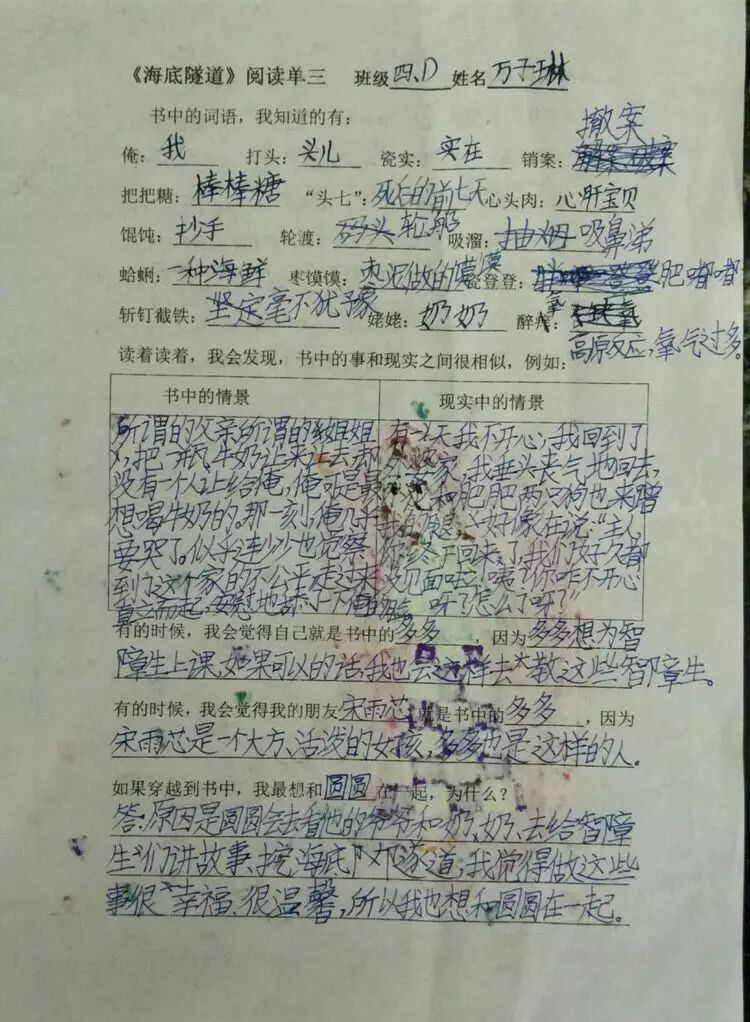 《海底隧道》阅读单三 班级四、D 姓名万子琳
书中的词语，我知道的有：
撤案
俺：我 打头：头儿 瓷实：实在 销案：
把把糖：棒棒糖 “头七”：死后的前七天 心头肉：心肝宝贝
馄饨：抄手 轮渡：码头轮船 吸溜：吸鼻涕
蛤蜊：一种海鲜 枣馍馍：枣泥做的馍馍 瓷登登：肥嘟嘟
斩钉截铁：坚定毫不犹豫 姥姥：奶奶 醉氧：
高原反应，氧气过多。
读着读着，我会发现，书中的事和现实之间很相似，例如：
书中的情景 现实中的情景
所谓的父亲所谓的姐姐
把一瓶牛奶让来让去却
没有一个人让给俺，俺可是最
想喝牛奶的。那一刻，俺几乎
要哭了。似乎连沙沙也觉察
到了这个家的不公平，走过来
直立而起，安慰地舔了一下俺的
有一天我不开心，我回到了
家，我垂头丧气地回去，
和肥肥两只狗也来蹭
我的腿，好像在说：“主人
你终于回来了，我们好久都
没见面啦！咦？你咋不开心
呀？怎么了呀？”
有的时候，我会觉得自己就是书中的多多，因为多多想为智
障生上课，如果可以的话，我也会这样去教这些智障生。
有的时候，我会觉得我的朋友宋雨芯就是书中的多多，因为
宋雨芯是一个大方、活泼的女孩，多多也是这样的人。
如果穿越到书中，我最想和圆圆在一起，为什么？
答：原因是圆圆会去看他的爷爷和奶奶、去给智障
生们讲故事、挖海底隧道，我觉得做这些
事很幸福、很温馨，所以我也想和圆圆在一起。